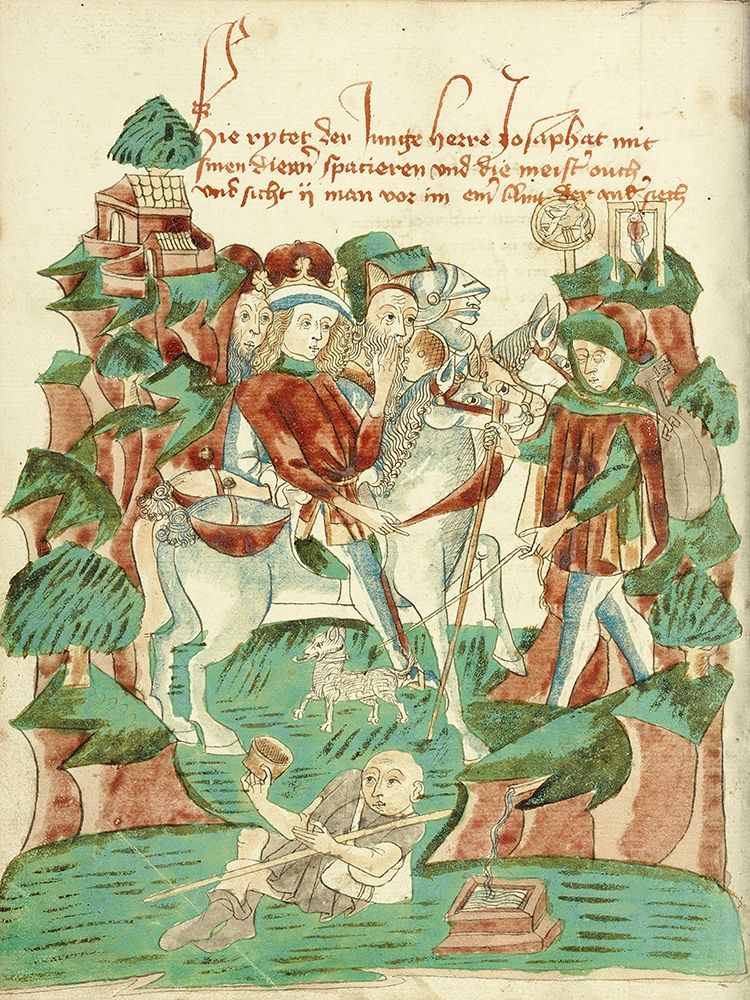 Hie rytet der Junge herre Josaphat mit
sinen diern̄ spacieren und die meist' ouch
und sicht ij man vor im ein' blint der and' siech